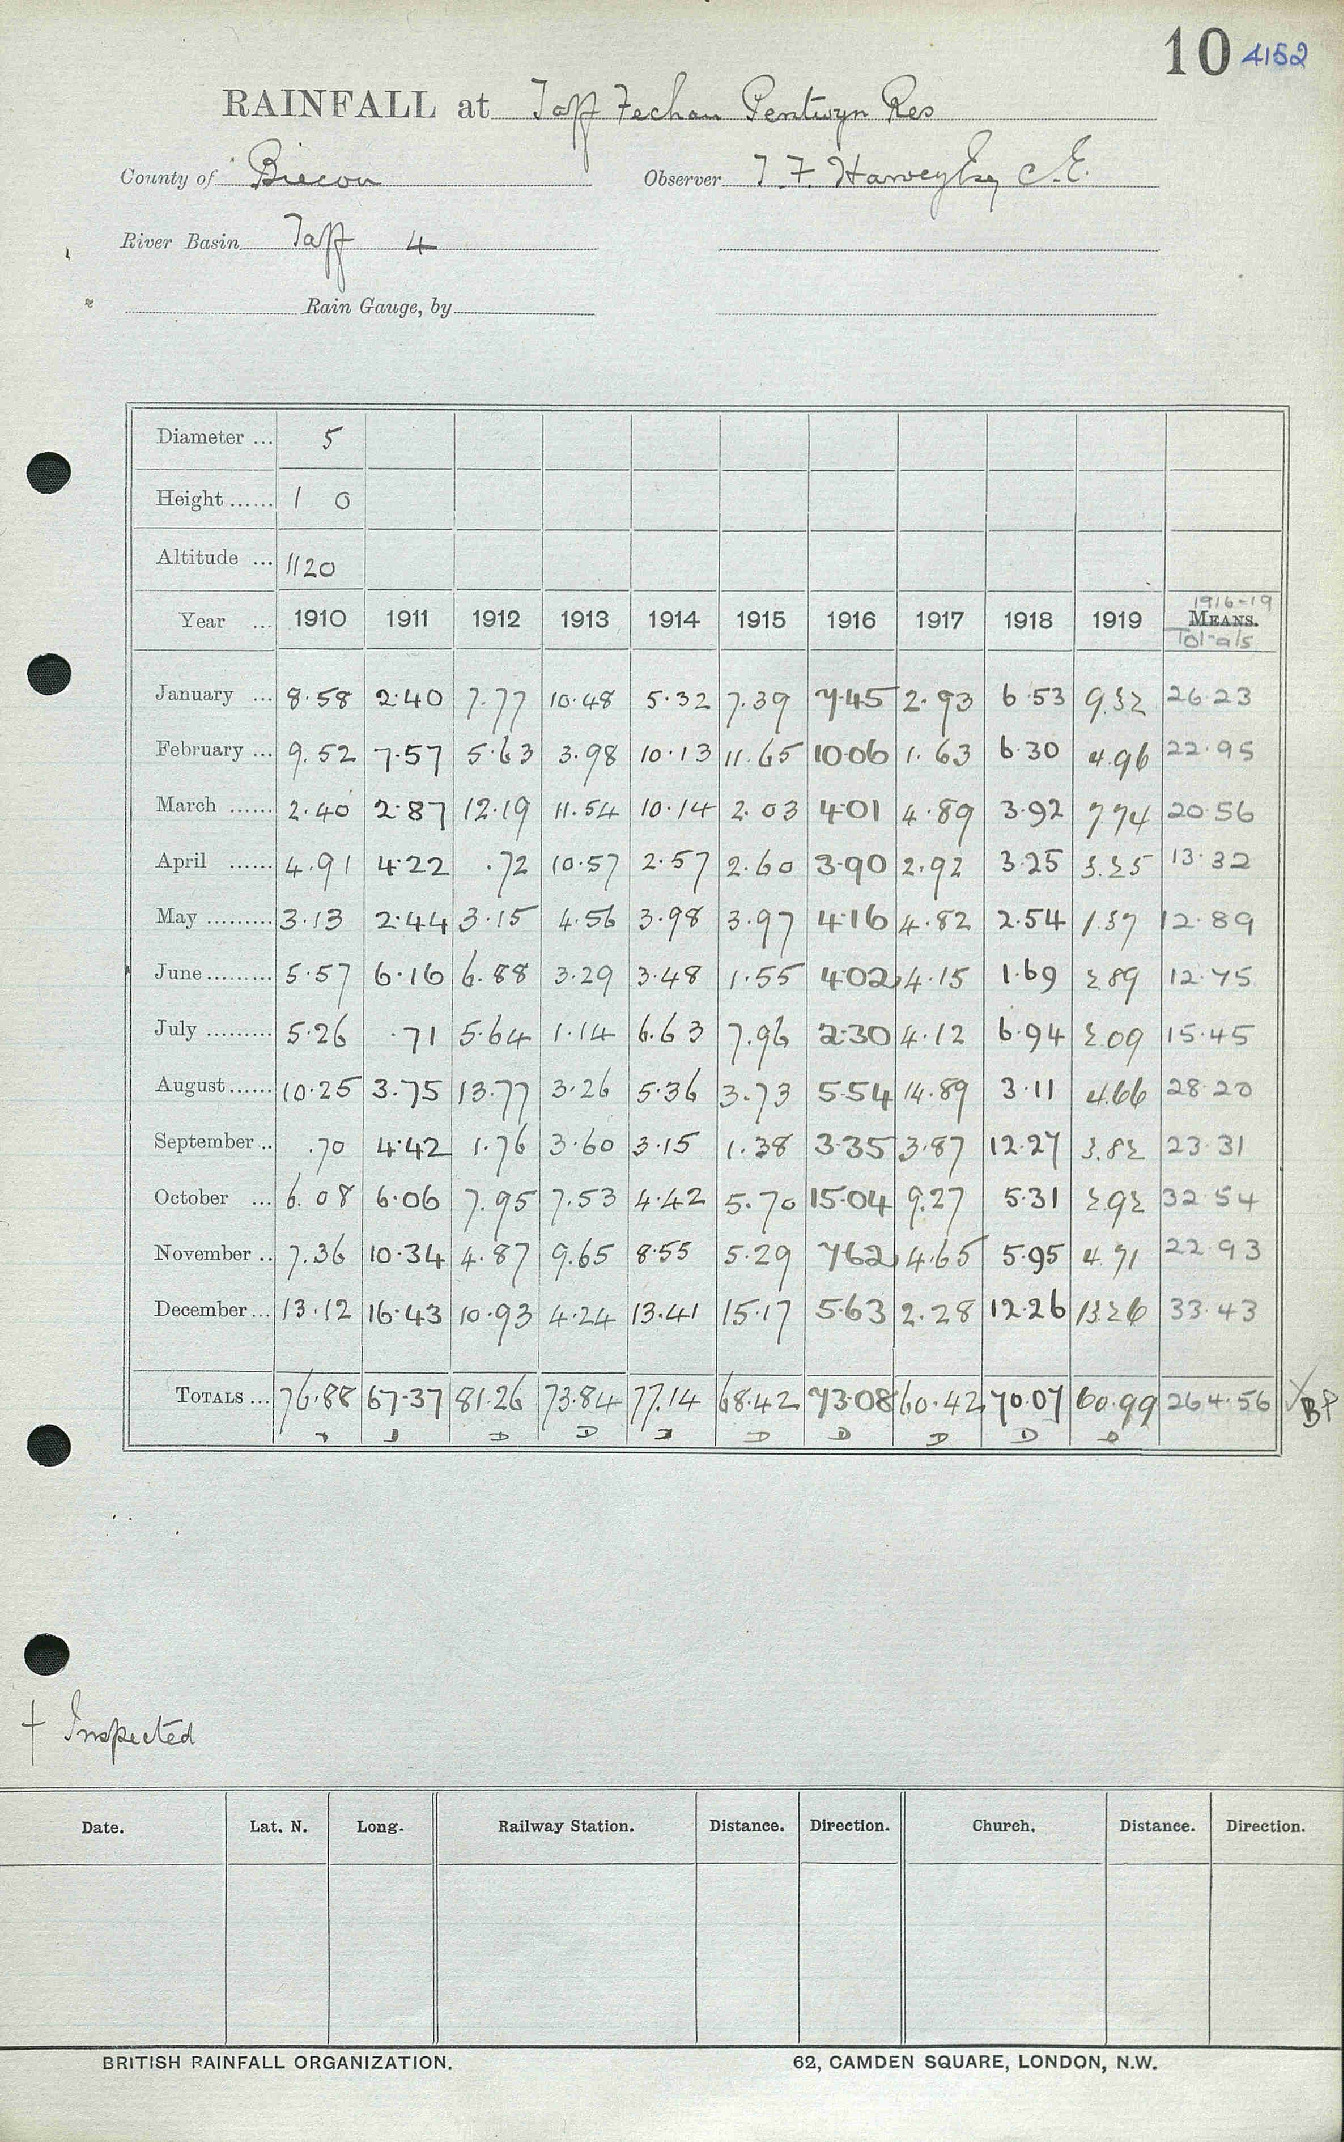 10 4152
RAINFALL at Taff Fechan Pentwyn Res
County of Brecon Observer T. F. Harvey Esq C.E.
River Basin Taff 4
Rain Gauge, by
Diameter ... 5
Height ...... 1 0
Altitude ... 1120
1916-19
Year ... 1910 1911 1912 1913 1914 1915 1916 1917 1918 1919 MEANS.
Totals
January ... 8.58 2.40 7.77 10.48 5.32 7.39 7.45 2.93 6.53 9.32 26.23
February ... 9.52 7.57 5.63 3.98 10.13 11.65 10.06 1.63 6.30 4.96 22.95
March ...... 2.40 2.87 12.19 11.54 10.14 2.03 4.01 4.89 3.92 7.74 20.56
April ...... 4.91 4.22 .72 10.57 2.57 2.60 3.90 2.92 3.25 3.25 13.32
May ......... 3.13 2.44 3.15 4.56 3.98 3.97 4.16 4.82 2.54 1.37 12.89
June ......... 5.57 6.16 6.88 3.29 3.48 1.55 4.02 4.15 1.69 2.89 12.75
July ......... 5.26 .71 5.64 1.14 6.63 7.96 2.30 4.12 6.94 2.09 15.45
August ...... 10.25 3.75 13.77 3.26 5.36 3.73 5.54 14.89 3.11 4.66 28.20
September .. .70 4.42 1.76 3.60 3.15 1.38 3.35 3.87 12.27 3.82 23.31
October ... 6.08 6.06 7.95 7.53 4.42 5.70 15.04 9.27 5.31 2.92 32.54
November .. 7.36 10.34 4.87 9.65 8.55 5.29 7.62 4.65 5.95 4.71 22.93
December ... 13.12 16.43 10.93 4.24 13.41 15.17 5.63 2.28 12.26 13.26 33.43
TOTALS ... 76.88 67.37 81.26 73.84 77.14 68.42 73.08 60.42 70.07 60.99 264.56
D D D D D D D D
† Inspected
Date. Lat. N. Long. Railway Station. Distance. Direction. Church. Distance. Direction.
BRITISH RAINFALL ORGANIZATION. 62, CAMDEN SQUARE, LONDON, N.W.